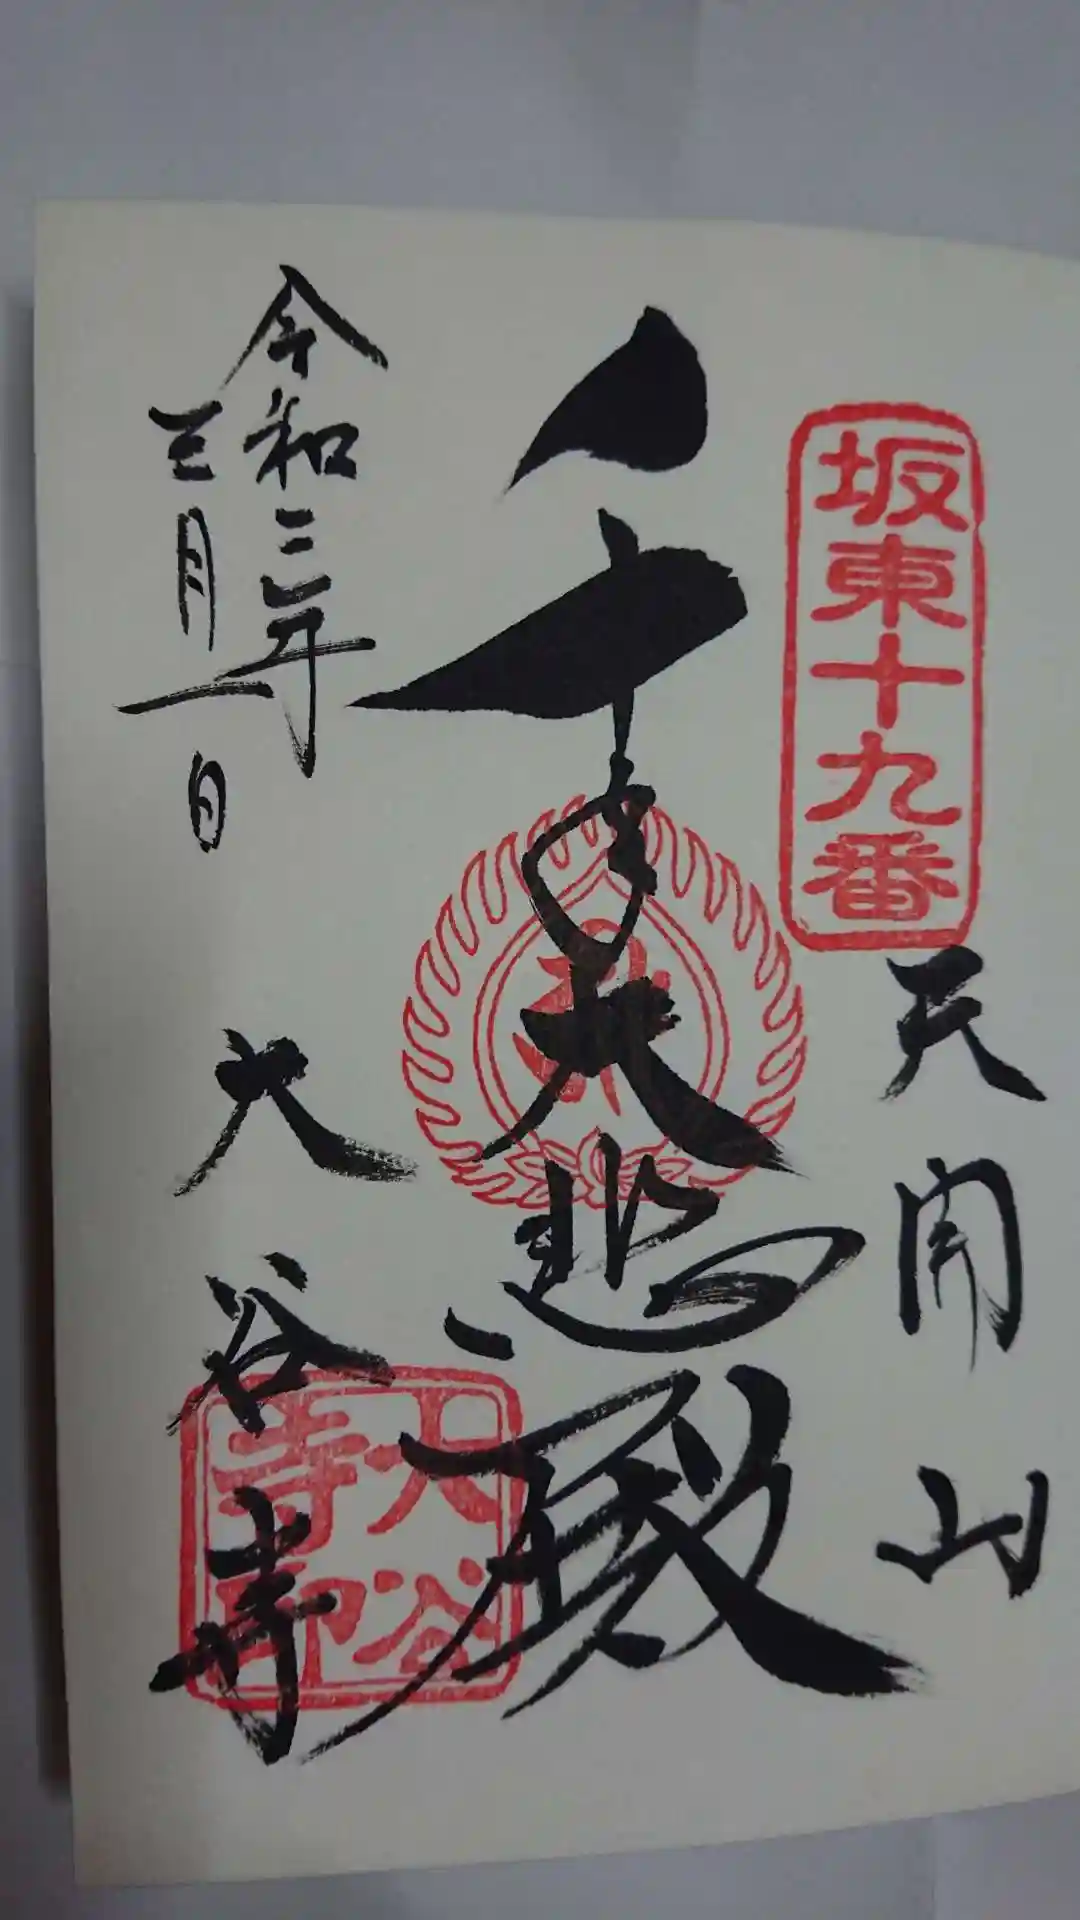 坂東十九番
天開山
千手大悲殿
大谷寺印
令和三年
三月一日
大谷寺